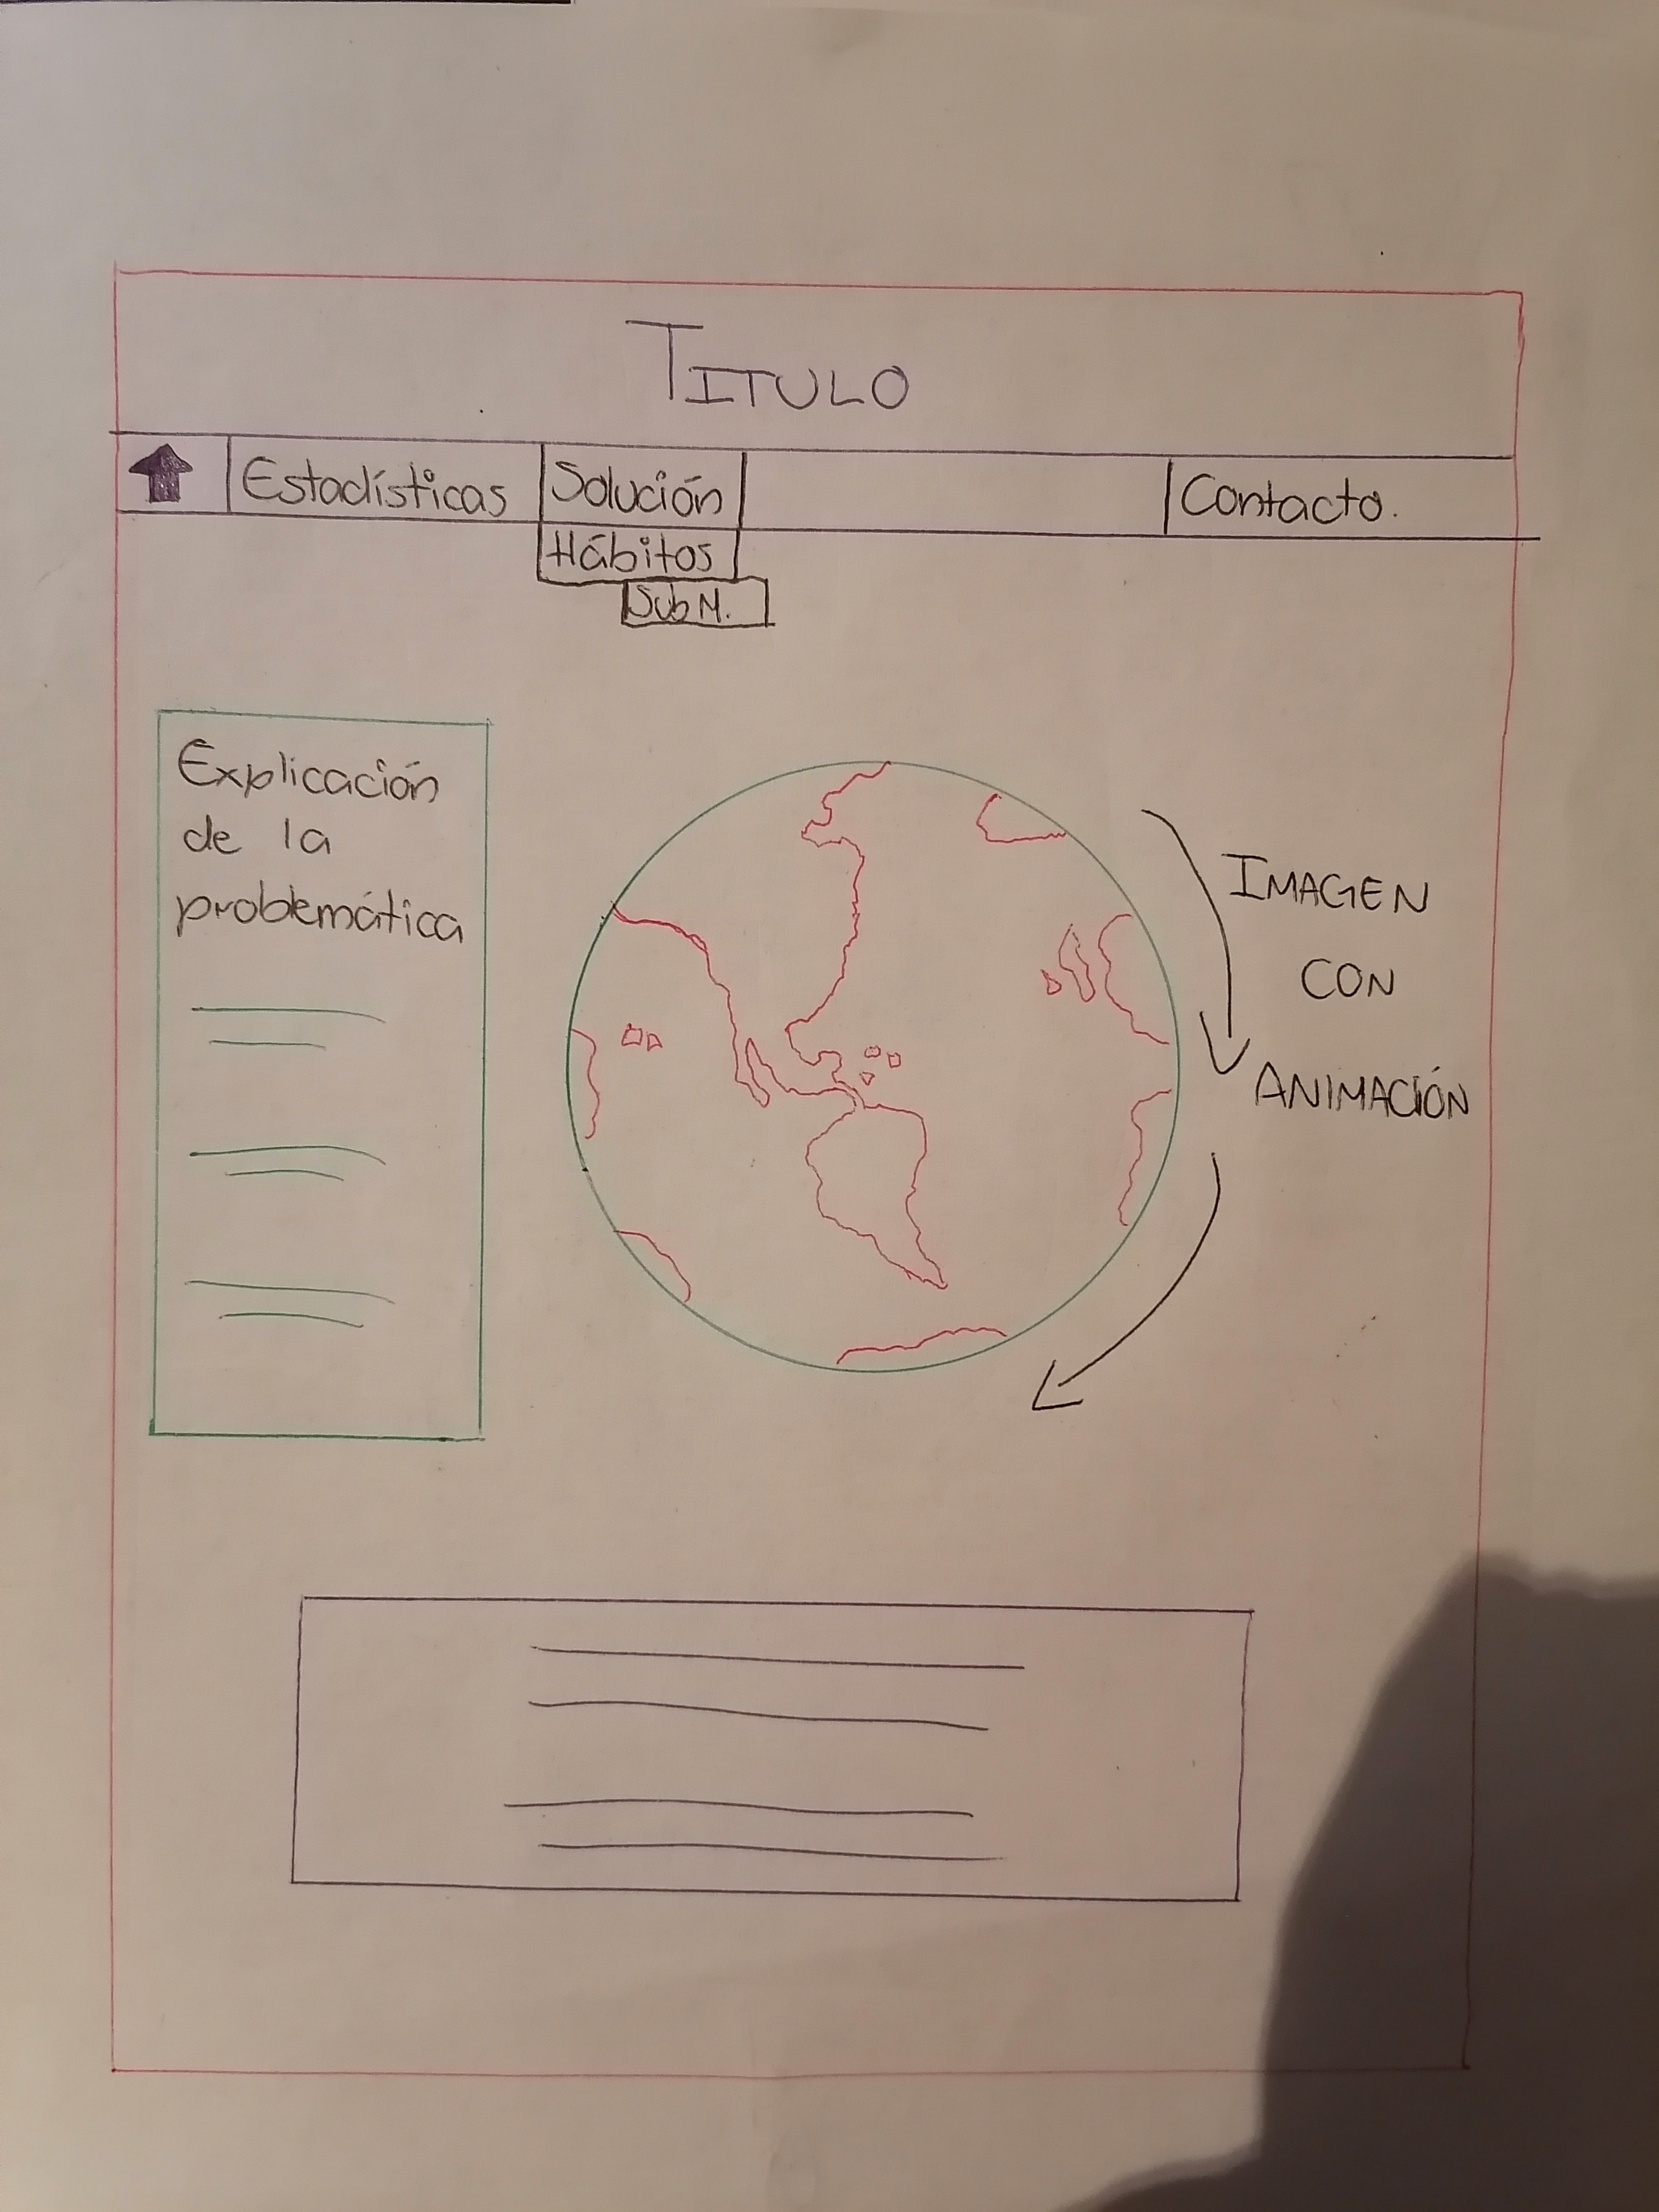 TITULO
Estadísticas
Solución
Contacto.
Hábitos
Sub M.
Explicación
de la
problemática
IMAGEN
CON
ANIMACIÓN